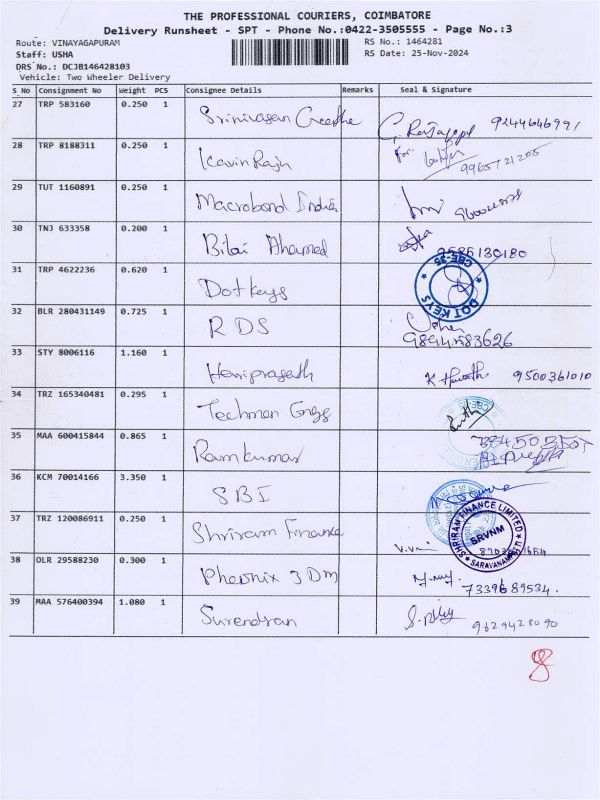 THE PROFESSIONAL COURIERS, COIMBATORE
Delivery Runsheet - SPT - Phone No.:0422-3505555 - Page No.:3
Route: VINAYAGAPURAM
RS No.: 1464281
Staff: USHA
RS Date: 25-Nov-2024
DRS No.: DCJB146428103
Vehicle: Two Wheeler Delivery
S No Consignment No Weight PCS Consignee Details Remarks Seal & Signature
27 TRP 583160 0.250 1 Srinivasan Geetha G. Rajagopal
28 TRP 8188311 0.250 1 Kavin Rajn for 9965721205
29 TUT 1160891 0.250 1 Macrobond India
30 TNJ 633358 0.200 1 Bilai Ahamed 9585130180
31 TRP 4622236 0.620 1 Dotkeys CBE-35 DOT KEYS
32 BLR 280431149 0.725 1 RDS Usha
33 STY 8006116 1.160 1 Hariprasath 9500361010
34 TRZ 165340481 0.295 1 Techman Engg
35 MAA 600415844 0.865 1 Ramkumar
36 KCM 70014166 3.350 1 SBI
37 TRZ 120086911 0.250 1 Shriram Finance SHRIRAM FINANCE LIMITED SRVNM
38 OLR 29588230 0.300 1 Pheonix 3Dm 7339689534.
39 MAA 576400394 1.080 1 Surendran 9629428090
8